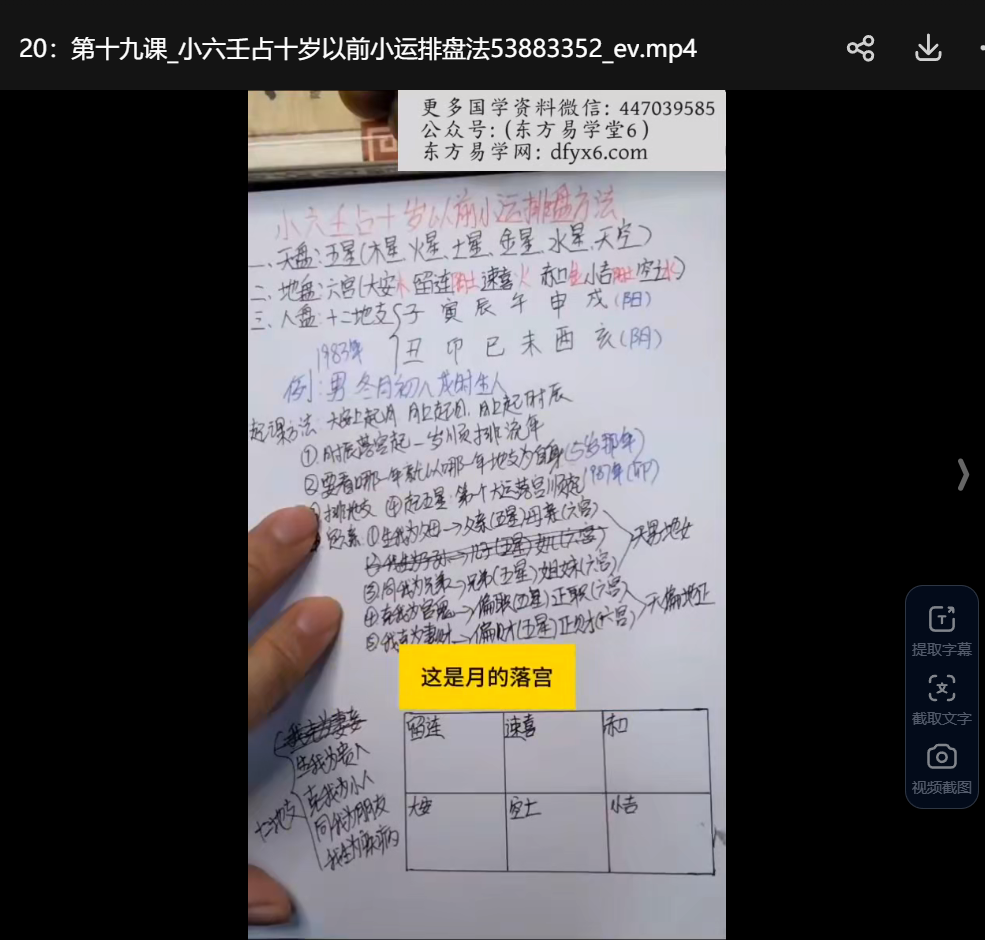 20：第十九课_小六壬占十岁以前小运排盘法53883352_ev.mp4
更多国学资料微信：447039585
公众号：(东方易学堂6)
东方易学网：dfyx6.com
小六壬占十岁以前小运排盘方法
一、天盘：五星(木星、火星、土星、金星、水星、天空)
二、地盘：六宫(大安木 留连 速喜火 赤口金 小吉 空亡)
三、人盘：十二地支 子 寅 辰 午 申 戌 (阳)
丑 卯 巳 未 酉 亥 (阴)
1983年
例：男 冬月初八戌时生人
起课方法：大安上起月 月上起日、日上起时辰
①时辰落宫起一岁顺排流年
②要看哪一年就以哪一年地支为自身(5岁那年)
1987年(卯)
③排地支 ④起五星：第一个大运落宫顺起
六亲 ①生我为父母→父亲(五星)母亲(六宫)
②我生为子孙→儿子(五星)女儿(六宫)
天男地女
③同我为兄弟→兄弟(五星)姐妹(六宫)
④克我为官鬼→偏职(五星)正职(六宫)
天偏地正
⑤我克为妻财→偏财(五星)正财(六宫)
这是月的落宫
十二地支
我克为妻妾
生我为贵人
克我为小人
同我为朋友
我生为疾病
留连 速喜 赤口
大安 空亡 小吉
提取字幕
截取文字
视频截图